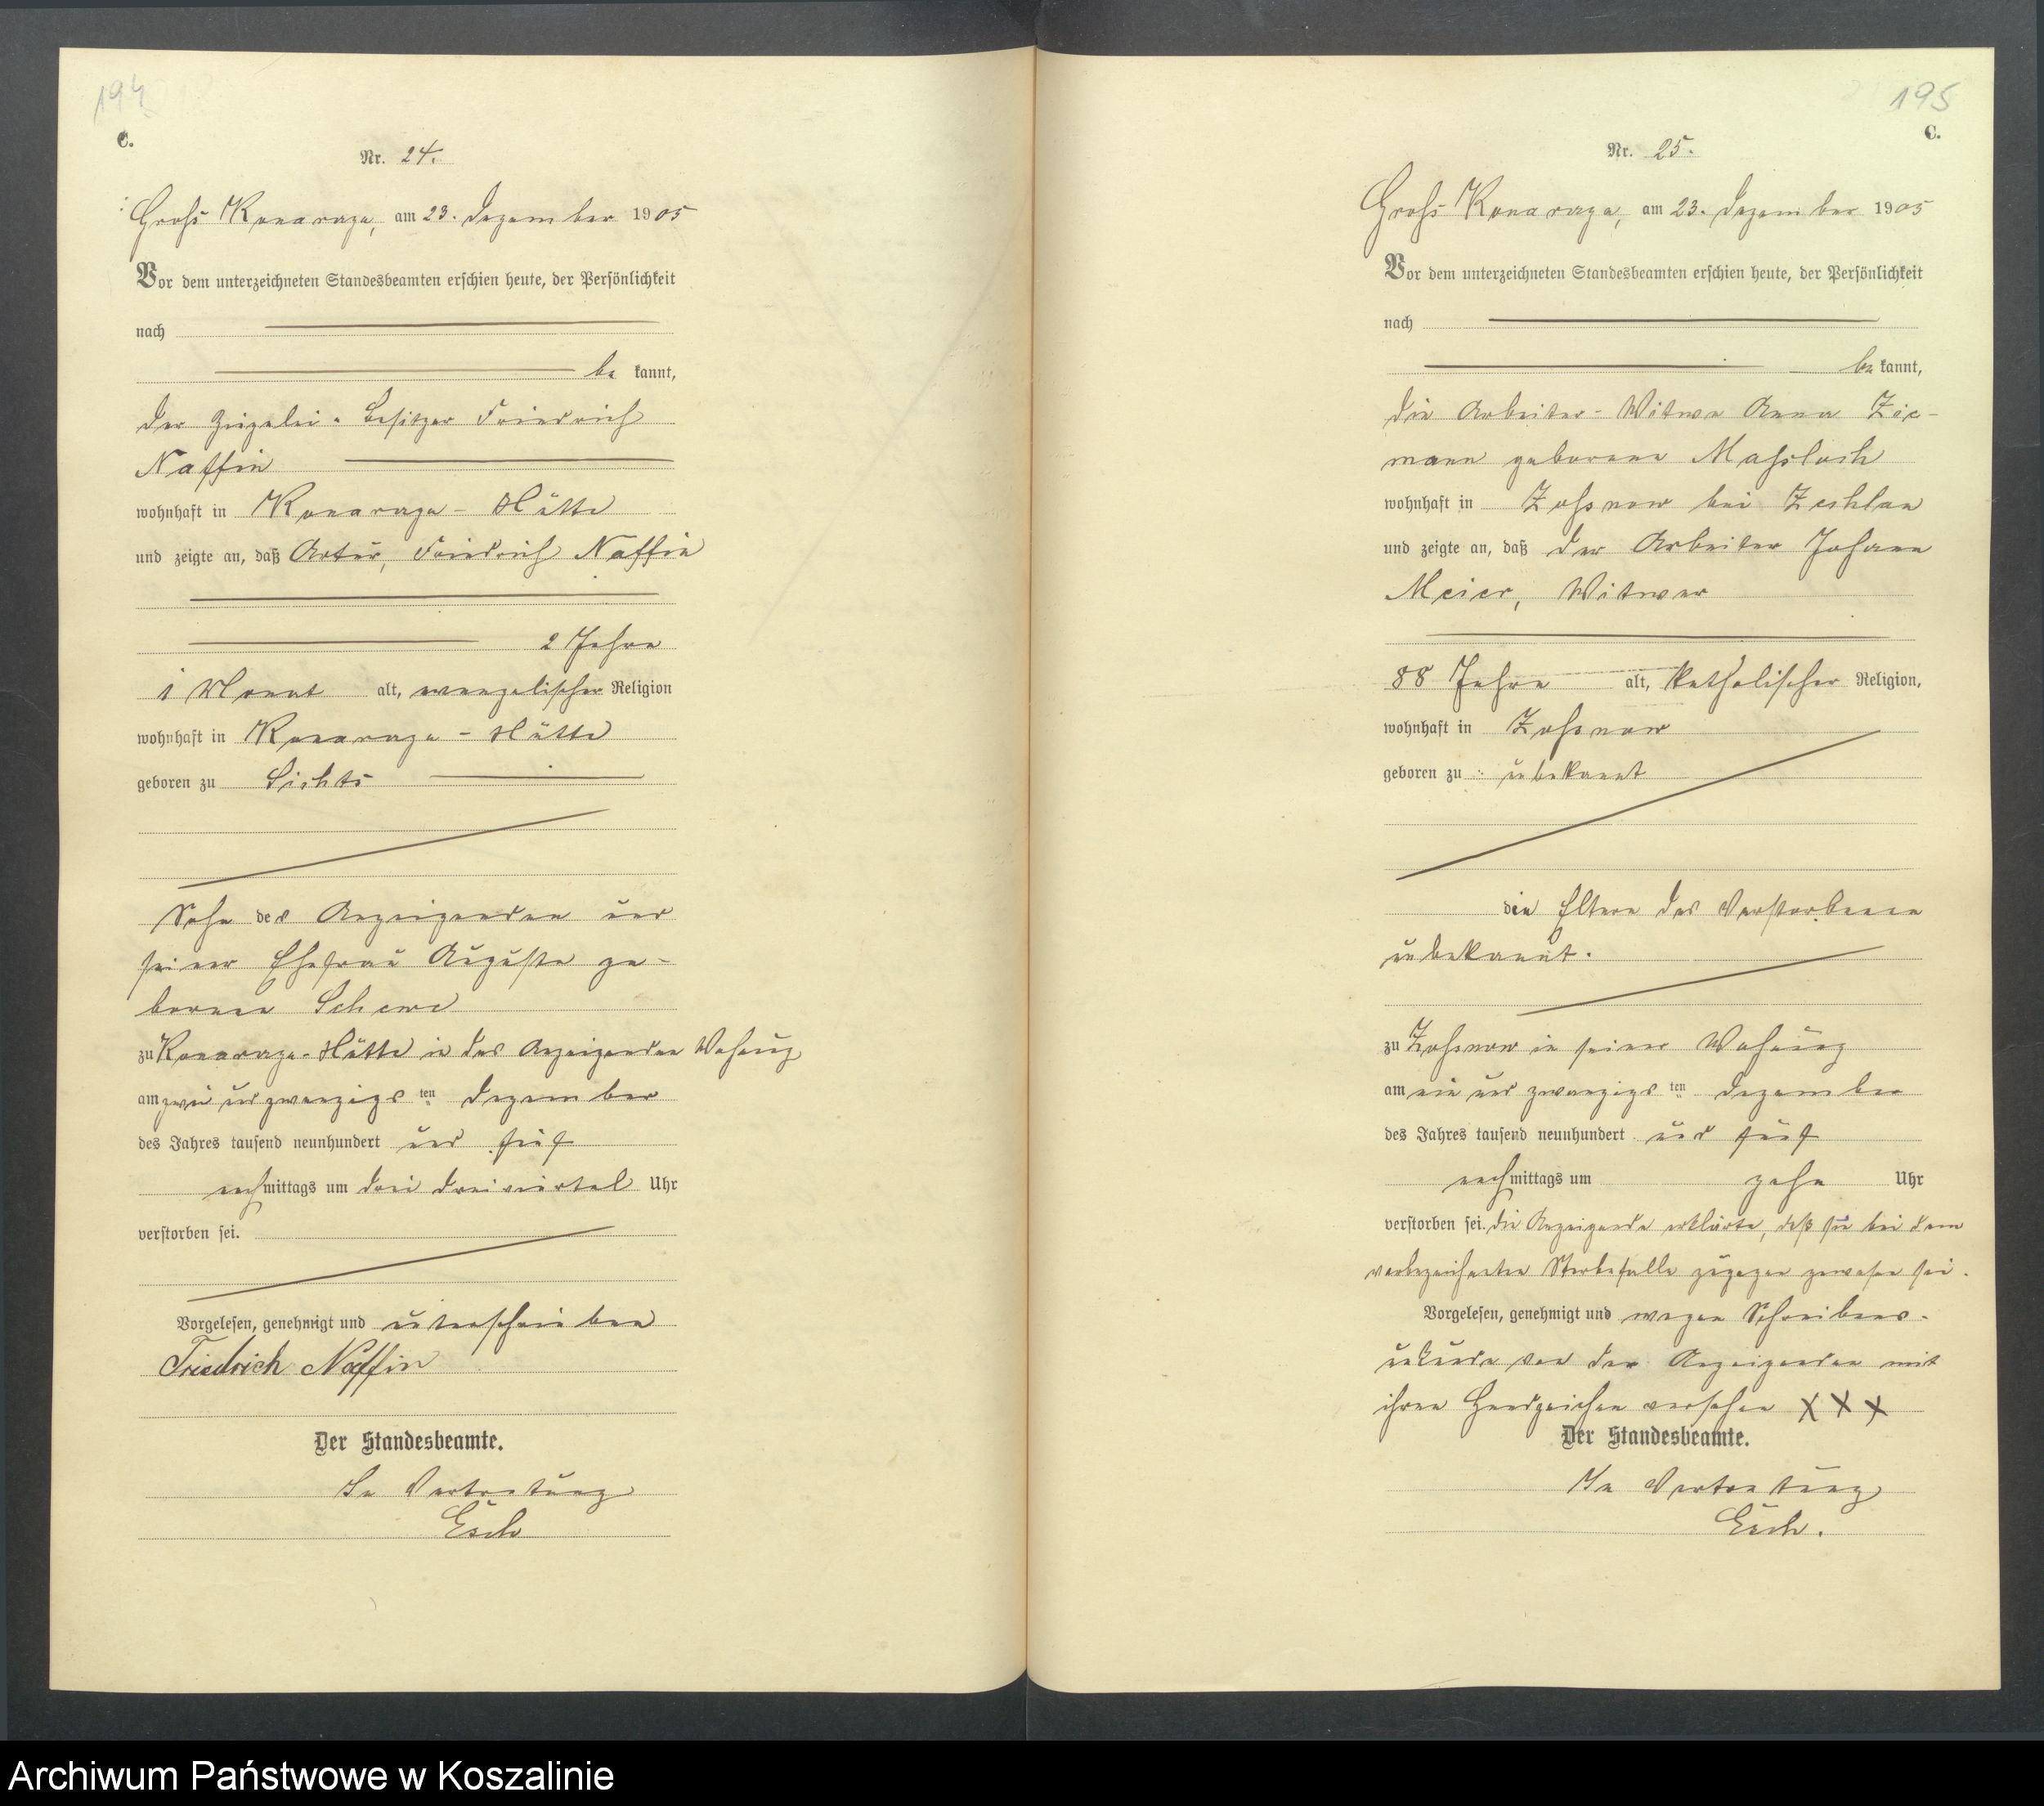 194
C.
Nr. 24.
Groß Konarzyn, am 23. Dezember 1905
Vor dem unterzeichneten Standesbeamten erschien heute, der Persönlichkeit
nach
be kannt,
der Ziegelei-Besitzer Friedrich
Naffin
wohnhaft in Konarzyn-Hütte
und zeigte an, daß Artur, Friedrich Naffin
2 Jahre
1 Monat alt, evangelischer Religion
wohnhaft in Konarzyn-Hütte
geboren zu
Sohn des Anzeigenden und
seiner Ehefrau Auguste ge-
borenen Schewe
zu Konarzyn-Hütte in des Anzeigenden Wohnung
am zwei und zwanzigsten Dezember
des Jahres tausend neunhundert und fünf
nachmittags um drei dreiviertel Uhr
verstorben sei.
Vorgelesen, genehmigt und unterschrieben
Friedrich Naffin
Der Standesbeamte.
In Vertretung
Esch
195
C.
Nr. 25.
Groß Konarzyn, am 23. Dezember 1905
Vor dem unterzeichneten Standesbeamten erschien heute, der Persönlichkeit
nach
be kannt,
die Arbeiter-Witwe Anna Zie-
mann geborene Maßloch
wohnhaft in Zoßnow bei Zechlau
und zeigte an, daß der Arbeiter Johann
Meier, Witwer
88 Jahre alt, katholischer Religion,
wohnhaft in Zoßnow
geboren zu unbekannt
die Eltern des Verstorbenen
unbekannt.
zu Zoßnow in seiner Wohnung
am ein und zwanzigsten Dezember
des Jahres tausend neunhundert und fünf
nachmittags um zehn Uhr
verstorben sei. Die Anzeigende erklärte, daß sie bei dem
vorbezeichneten Sterbefalle zugegen gewesen sei.
Vorgelesen, genehmigt und wegen Schreibens-
unkunde von der Anzeigenden mit
ihren Handzeichen versehen XXX
Der Standesbeamte.
In Vertretung
Esch.
Archiwum Państwowe w Koszalinie